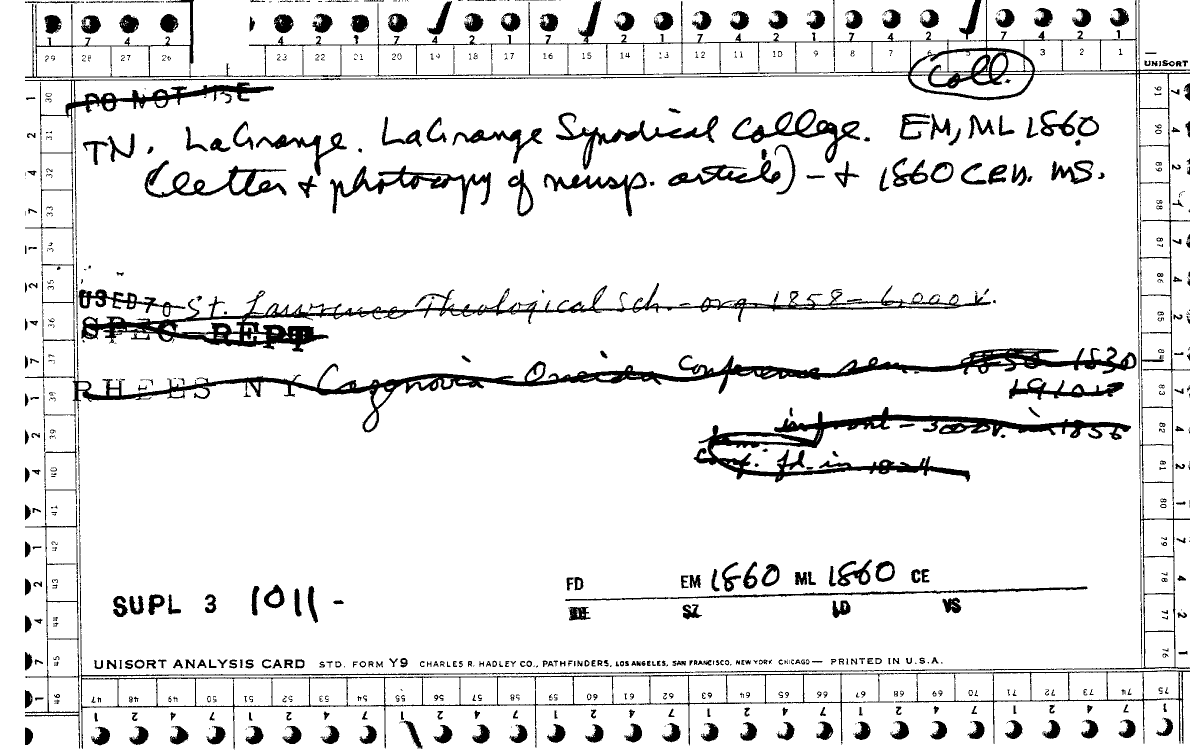 1 7 4 2 4 2 1 7 4 2 1 7 4 2 1 7 4 2 1 7 4 2 1
29 28 27 26 23 22 21 20 19 18 17 16 15 14 13 12 11 10 9 8 7 6 5 3 2 1
UNISORT
Coll.
DO NOT USE
TN. LaGrange. LaGrange Synodical College. EM, ML 1860
(letter + photocopy of newsp. article) - + 1860 cen. ms.
USED 70 St. Lawrence Theological Sch. - org. 1858 - 6,000 v.
SPEC REPT
RHEES NY Cazenovia - Oneida Conference sem. 1850 1830
in front - 3000v. in 1856
Conf. fd. in 1824
FD EM 1860 ML 1860 CE
SZ LD VS
SUPL 3 1011 -
UNISORT ANALYSIS CARD STD. FORM Y9 CHARLES R. HADLEY CO., PATHFINDERS, LOS ANGELES, SAN FRANCISCO, NEW YORK CHICAGO — PRINTED IN U.S.A.
47 48 49 50 51 52 53 54 55 56 57 58 59 60 61 62 63 64 65 66 67 68 69 70 71 72 73 74 75
1 2 4 7 1 2 4 7 1 2 4 7 1 2 4 7 1 2 4 7 1 2 4 7 1 2 4 7 1